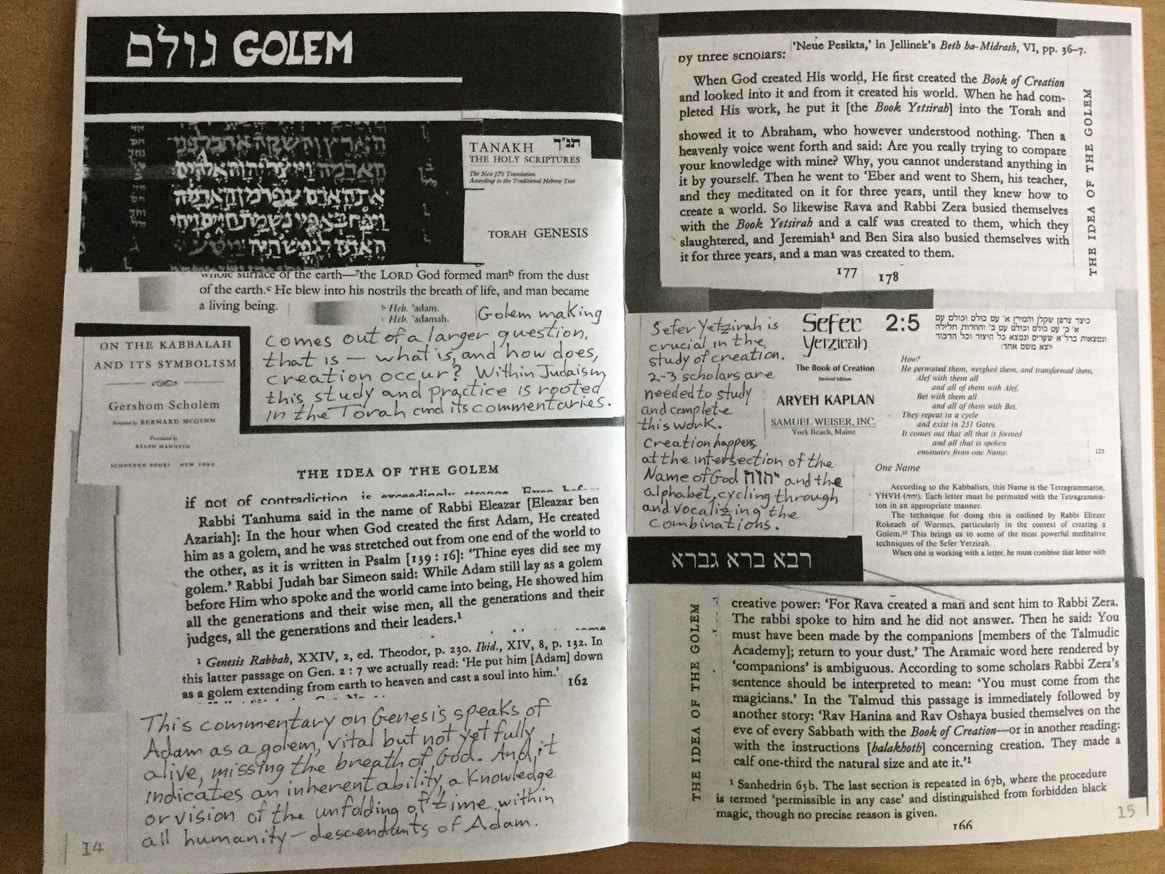 גולם GOLEM
TANAKH תנ״ך
THE HOLY SCRIPTURES
The New JPS Translation
According to the Traditional Hebrew Text
TORAH GENESIS
whole surface of the earth—⁷the LORD God formed manᵇ from the dust
of the earth.ᶜ He blew into his nostrils the breath of life, and man became
a living being.
ᵇ Heb. ’adam.
ᶜ Heb. ’adamah.
Golem making
comes out of a larger question,
that is — what is, and how does,
creation occur? Within Judaism
this study and practice is rooted
in the Torah and its commentaries.
ON THE KABBALAH
AND ITS SYMBOLISM
Gershom Scholem
Foreword by BERNARD McGINN
Translated by
RALPH MANHEIM
SCHOCKEN BOOKS NEW YORK
THE IDEA OF THE GOLEM
if not of contradiction is exceedingly strange. Even before
Rabbi Tanhuma said in the name of Rabbi Eleazar [Eleazar ben
Azariah]: In the hour when God created the first Adam, He created
him as a golem, and he was stretched out from one end of the world to
the other, as it is written in Psalm [139 : 16]: ‘Thine eyes did see my
golem.’ Rabbi Judah bar Simeon said: While Adam still lay as a golem
before Him who spoke and the world came into being, He showed him
all the generations and their wise men, all the generations and their
judges, all the generations and their leaders.¹
¹ Genesis Rabbah, XXIV, 2, ed. Theodor, p. 230. Ibid., XIV, 8, p. 132. In
this latter passage on Gen. 2 : 7 we actually read: ‘He put him [Adam] down
as a golem extending from earth to heaven and cast a soul into him.’
162
This commentary on Genesis speaks of
Adam as a golem, vital but not yet fully
alive, missing the breath of God. And it
indicates an inherent ability, a Knowledge
or vision of the unfolding of time within
all humanity — descendants of Adam.
14
by three scholars: ‘Neue Pesikta,’ in Jellinek's Beth ha-Midrash, VI, pp. 36–7.
When God created His world, He first created the Book of Creation
and looked into it and from it created his world. When he had com-
pleted His work, he put it [the Book Yetsirah] into the Torah and
showed it to Abraham, who however understood nothing. Then a
heavenly voice went forth and said: Are you really trying to compare
your knowledge with mine? Why, you cannot understand anything in
it by yourself. Then he went to ‘Eber and went to Shem, his teacher,
and they meditated on it for three years, until they knew how to
create a world. So likewise Rava and Rabbi Zera busied themselves
with the Book Yetsirah and a calf was created to them, which they
slaughtered, and Jeremiah¹ and Ben Sira also busied themselves with
it for three years, and a man was created to them.
177 178
THE IDEA OF THE GOLEM
Sefer Yetzirah is
crucial in the
study of creation.
2-3 scholars are
needed to study
and complete
this work.
Creation happens
at the intersection of the
Name of God יהוה and the
alphabet, cycling through
and vocalizing the
combinations.
Sefer
Yetzirah
The Book of Creation
Revised Edition
ARYEH KAPLAN
SAMUEL WEISER, INC.
York Beach, Maine
2:5
כיצד צרפן שקלן והמירן א׳ עם כולם וכולם עם
א׳ ב׳ עם כולם וכולם עם ב׳ וחוזרות חלילה
ונמצאות ברל״א שערים ונמצא כל היצור וכל הדבור
יוצא משם אחד:
How?
He permuted them, weighed them, and transformed them,
Alef with them all
and all of them with Alef,
Bet with them all
and all of them with Bet.
They repeat in a cycle
and exist in 231 Gates.
It comes out that all that is formed
and all that is spoken
emanates from one Name.
125
One Name
According to the Kabbalists, this Name is the Tetragrammaton,
YHVH (יהוה). Each letter must be permuted with the Tetragramma-
ton in an appropriate manner.
The technique for doing this is outlined by Rabbi Eliezer
Rokeach of Wormes, particularly in the context of creating a
Golem. This brings us to some of the most powerful meditative
techniques of the Sefer Yetzirah.
When one is working with a letter, he must combine that letter with
רבא ברא גברא
THE IDEA OF THE GOLEM
creative power: ‘For Rava created a man and sent him to Rabbi Zera.
The rabbi spoke to him and he did not answer. Then he said: You
must have been made by the companions [members of the Talmudic
Academy]; return to your dust.’ The Aramaic word here rendered by
‘companions’ is ambiguous. According to some scholars Rabbi Zera's
sentence should be interpreted to mean: ‘You must come from the
magicians.’ In the Talmud this passage is immediately followed by
another story: ‘Rav Hanina and Rav Oshaya busied themselves on the
eve of every Sabbath with the Book of Creation—or in another reading:
with the instructions [halakhoth] concerning creation. They made a
calf one-third the natural size and ate it.’¹
¹ Sanhedrin 65b. The last section is repeated in 67b, where the procedure
is termed ‘permissible in any case’ and distinguished from forbidden black
magic, though no precise reason is given.
166
15